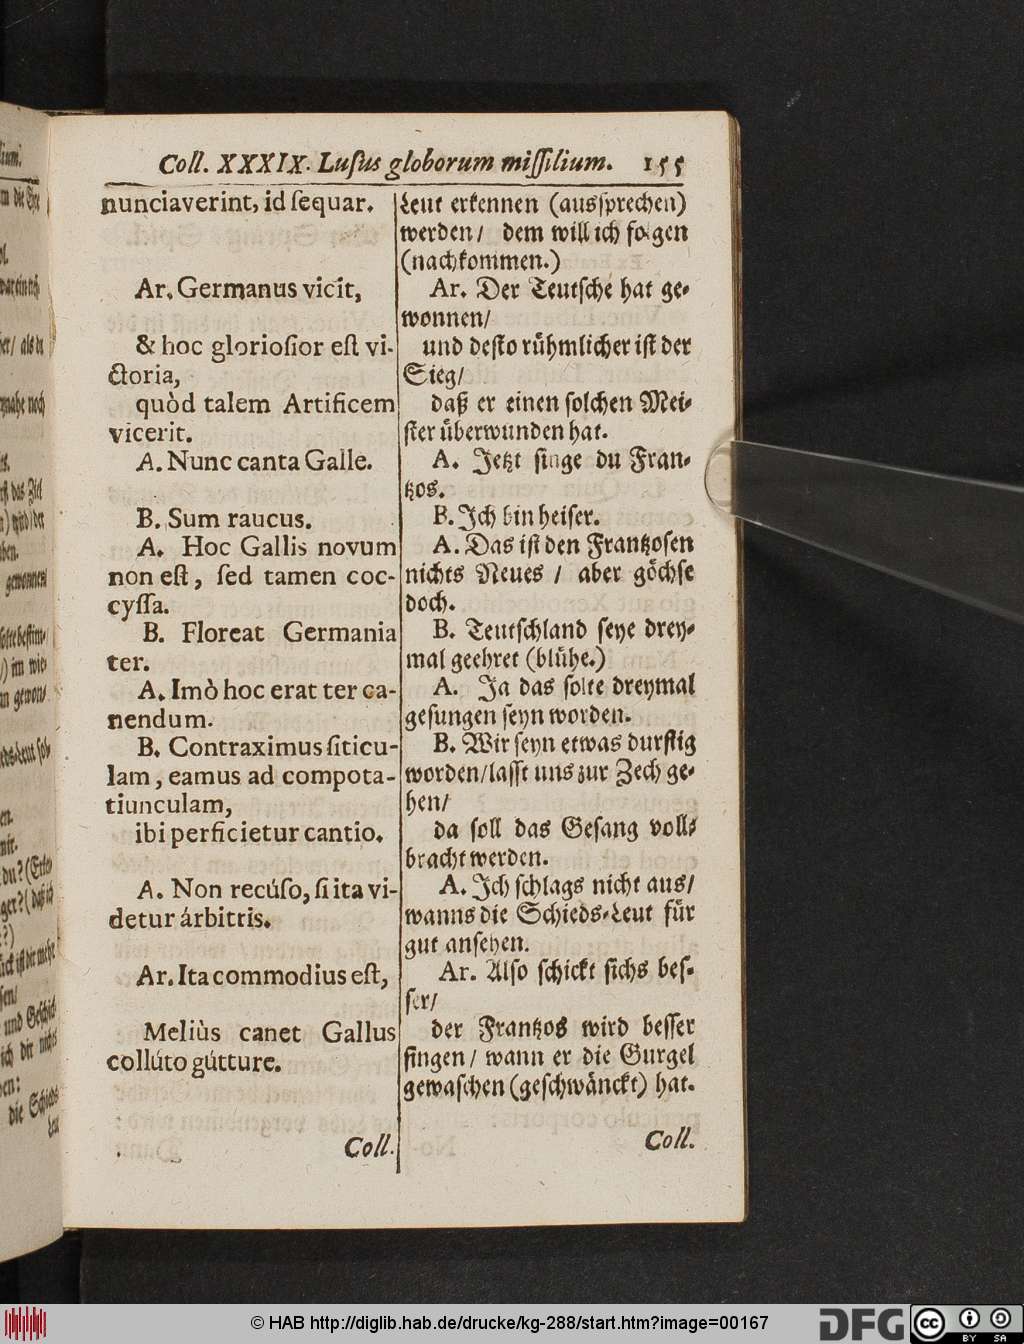 Coll. XXXIX. Luſus globorum miſſilium. 155
nunciaverint, id ſequar.
Ar. Germanus vicit,
& hoc glorioſior eſt vi-
ctoria,
quòd talem Artificem
vicerit.
A. Nunc canta Galle.
B. Sum raucus.
A. Hoc Gallis novum
non eſt, ſed tamen coc-
cyſſa.
B. Floreat Germania
ter.
A. Imò hoc erat ter ca-
nendum.
B. Contraximus ſiticu-
lam, eamus ad compota-
tiunculam,
ibi perficietur cantio.
A. Non recúſo, ſi ita vi-
detur árbitris.
Ar. Ita commodius eſt,
Meliùs canet Gallus
collúto gútture.
Coll.
Leut erkennen (ausſprechen)
werden/ dem will ich folgen
(nachkommen.)
Ar. Der Teutſche hat ge-
wonnen/
und deſto rühmlicher iſt der
Sieg/
daß er einen ſolchen Mei-
ſter überwunden hat.
A. Jetzt ſinge du Fran-
tzos.
B. Ich bin heiſer.
A. Das iſt den Frantzoſen
nichts Neues / aber göchſe
doch.
B. Teutſchland ſeye drey-
mal geehret (blühe.)
A. Ja das ſolte dreymal
geſungen ſeyn worden.
B. Wir ſeyn etwas durſtig
worden/laſſt uns zur Zech ge-
hen/
da ſoll das Geſang voll-
bracht werden.
A. Ich ſchlags nicht aus/
wanns die Schieds-Leut für
gut anſehen.
Ar. Alſo ſchickt ſichs beſ-
ſer/
der Frantzos wird beſſer
ſingen/ wann er die Gurgel
gewaſchen (geſchwänckt) hat.
Coll.
© HAB http://diglib.hab.de/drucke/kg-288/start.htm?image=00167
DFG
cc
BY SA